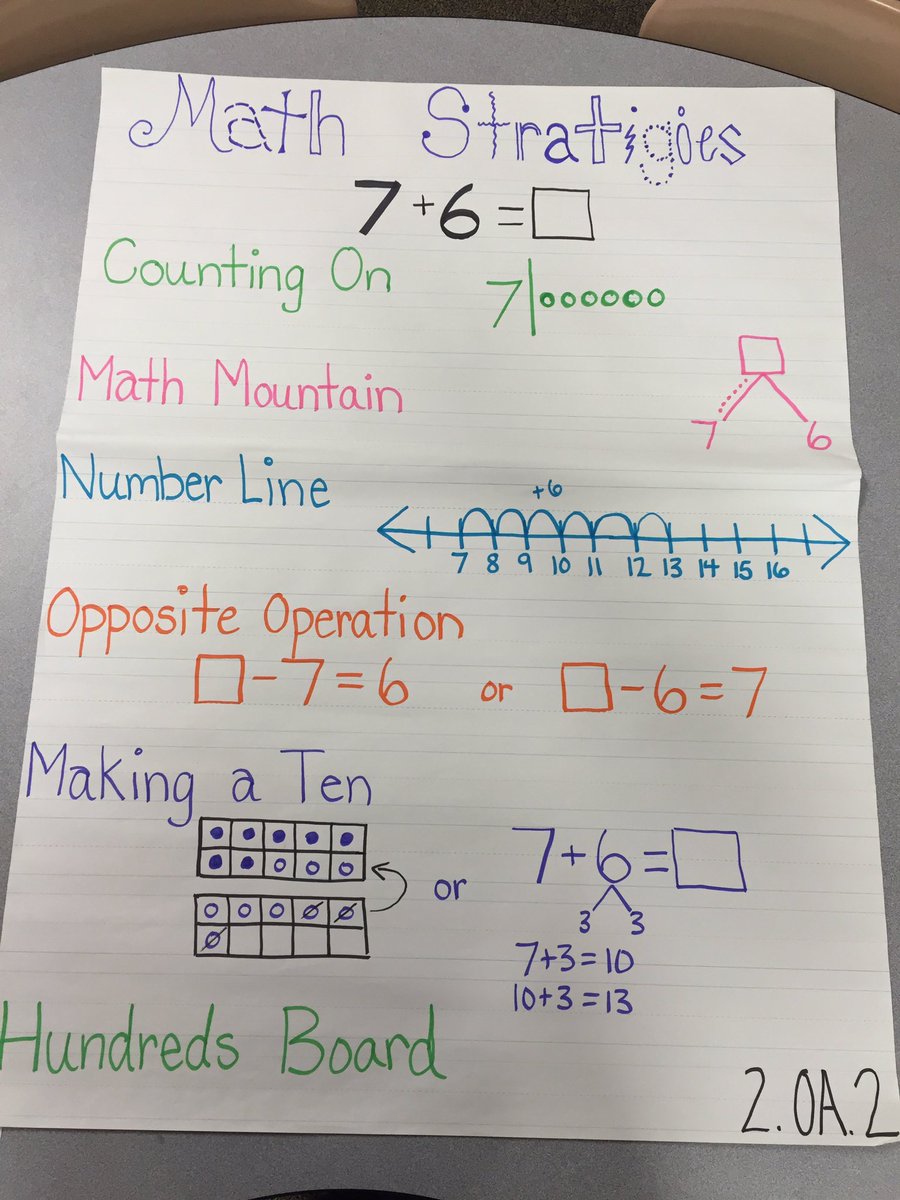 Math Stratigies
7 + 6 = □
Counting On 7|○○○○○○
□
Math Mountain
7 6
Number Line +6
7 8 9 10 11 12 13 14 15 16
Opposite Operation
□ - 7 = 6 or □ - 6 = 7
Making a Ten
or 7 + 6 = □
3 3
7 + 3 = 10
10 + 3 = 13
Hundreds Board
2.OA.2